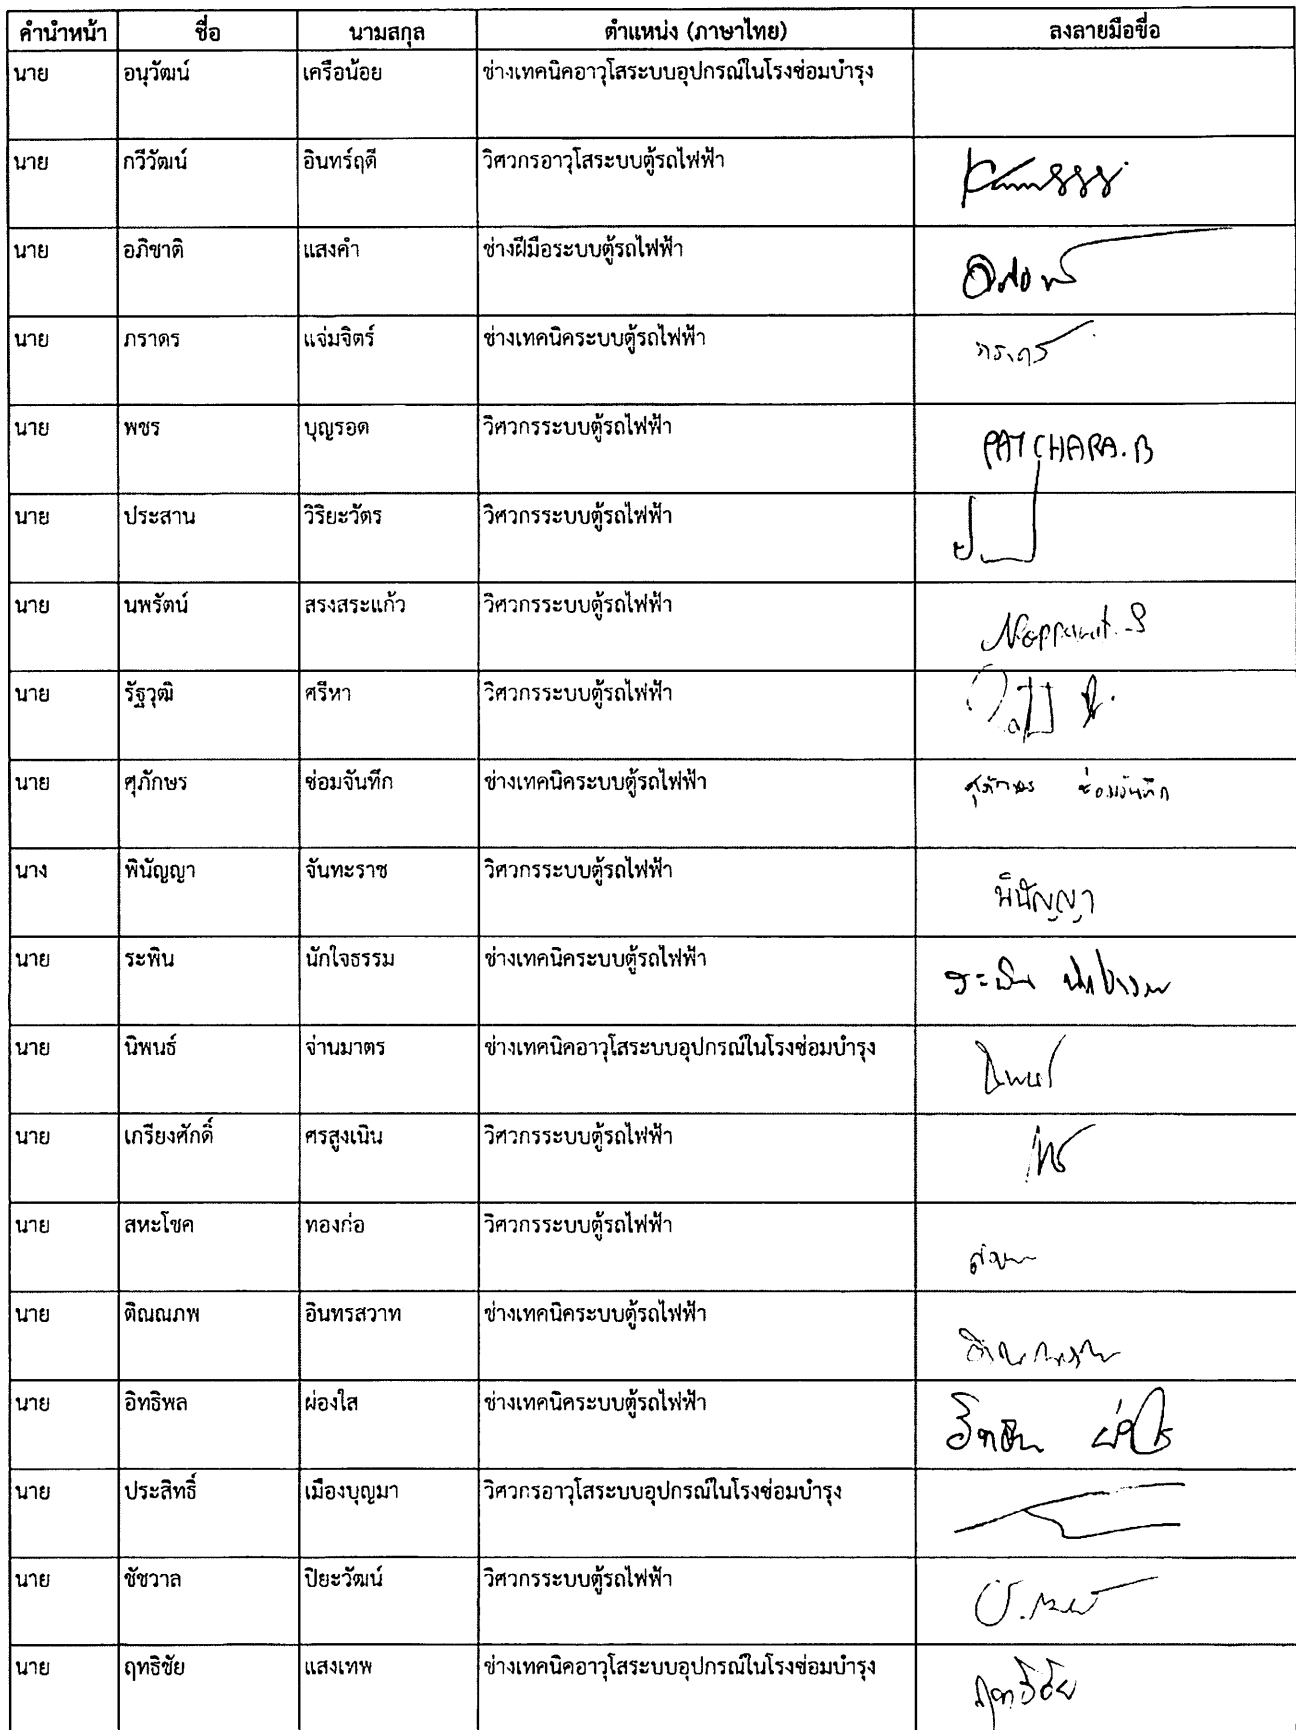 คำนำหน้า ชื่อ นามสกุล ตำแหน่ง (ภาษาไทย) ลงลายมือชื่อ
นาย อนุวัฒน์ เครือน้อย ช่างเทคนิคอาวุโสระบบอุปกรณ์ในโรงซ่อมบำรุง
นาย กวีวัฒน์ อินทร์ฤดี วิศวกรอาวุโสระบบตู้รถไฟฟ้า
นาย อภิชาติ แสงคำ ช่างฝีมือระบบตู้รถไฟฟ้า
นาย ภราดร แจ่มจิตร์ ช่างเทคนิคระบบตู้รถไฟฟ้า ภราดร
นาย พชร บุญรอด วิศวกรระบบตู้รถไฟฟ้า PATCHARA.B
นาย ประสาน วิริยะวัตร วิศวกรระบบตู้รถไฟฟ้า
นาย นพรัตน์ สรงสระแก้ว วิศวกรระบบตู้รถไฟฟ้า
นาย รัฐวุฒิ ศรีหา วิศวกรระบบตู้รถไฟฟ้า
นาย ศุภักษร ซ่อมจันทึก ช่างเทคนิคระบบตู้รถไฟฟ้า ศุภักษร ซ่อมจันทึก
นาง พินัญญา จันทะราช วิศวกรระบบตู้รถไฟฟ้า พินัญญา
นาย ระพิน นักใจธรรม ช่างเทคนิคระบบตู้รถไฟฟ้า
นาย นิพนธ์ จ่านมาตร ช่างเทคนิคอาวุโสระบบอุปกรณ์ในโรงซ่อมบำรุง นิพนธ์
นาย เกรียงศักดิ์ ศรสูงเนิน วิศวกรระบบตู้รถไฟฟ้า
นาย สหะโชค ทองก่อ วิศวกรระบบตู้รถไฟฟ้า
นาย ติณณภพ อินทรสวาท ช่างเทคนิคระบบตู้รถไฟฟ้า
นาย อิทธิพล ผ่องใส ช่างเทคนิคระบบตู้รถไฟฟ้า
นาย ประสิทธิ์ เมืองบุญมา วิศวกรอาวุโสระบบอุปกรณ์ในโรงซ่อมบำรุง
นาย ชัชวาล ปิยะวัฒน์ วิศวกรระบบตู้รถไฟฟ้า
นาย ฤทธิชัย แสงเทพ ช่างเทคนิคอาวุโสระบบอุปกรณ์ในโรงซ่อมบำรุง ฤทธิชัย